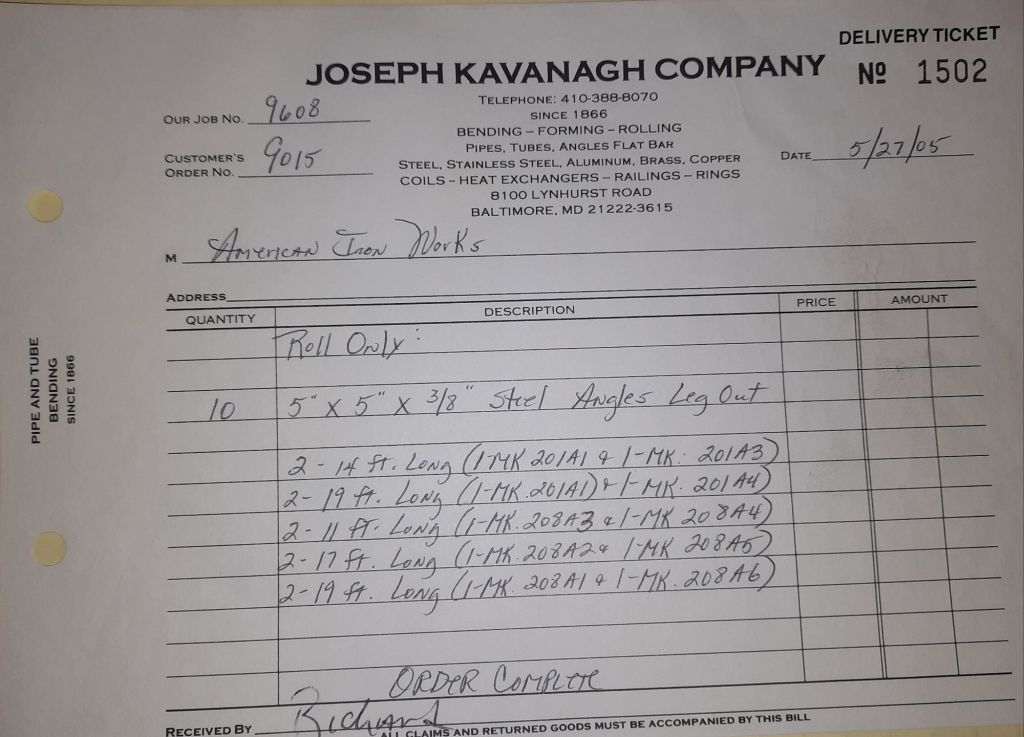 DELIVERY TICKET
JOSEPH KAVANAGH COMPANY Nº 1502
TELEPHONE: 410-388-8070
SINCE 1866
BENDING – FORMING – ROLLING
PIPES, TUBES, ANGLES FLAT BAR
STEEL, STAINLESS STEEL, ALUMINUM, BRASS, COPPER
COILS – HEAT EXCHANGERS – RAILINGS – RINGS
8100 LYNHURST ROAD
BALTIMORE, MD 21222-3615
OUR JOB NO. 9608
CUSTOMER'S
ORDER NO. 9015
DATE 5/27/05
M American Iron Works
ADDRESS
QUANTITY DESCRIPTION PRICE AMOUNT
Roll Only:
10 5" X 5" X 3/8" Steel Angles Leg Out
2 - 14 ft. Long (1-MK 201A1 & 1-MK. 201A3)
2 - 19 ft. Long (1-MK. 201A1) & 1-MK. 201A4)
2 - 11 ft. Long (1-MK. 208A3 & 1-MK 208A4)
2 - 17 ft. Long (1-MK. 208A2 & 1-MK 208A5)
2 - 19 ft. Long (1-MK. 208A1 & 1-MK. 208A6)
ORDER COMPLETE
RECEIVED BY Richard
ALL CLAIMS AND RETURNED GOODS MUST BE ACCOMPANIED BY THIS BILL
PIPE AND TUBE
BENDING
SINCE 1866